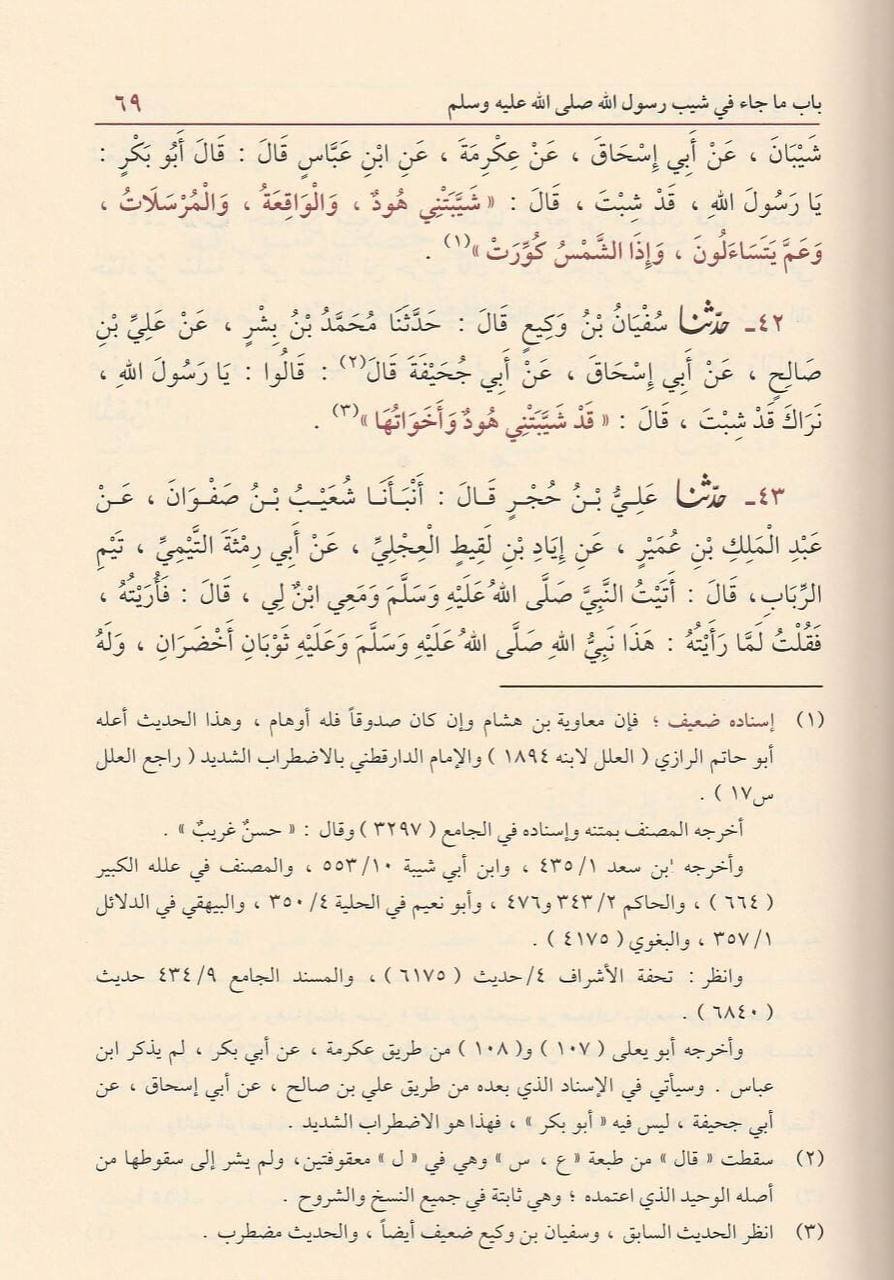 باب ما جاء في شيب رسول الله صلى الله عليه وسلم ٦٩
شَيْبَانَ ، عَنْ أَبِي إِسْحَاقَ ، عَنْ عِكْرِمَةَ ، عَنِ ابْنِ عَبَّاسٍ قَالَ : قَالَ أَبُو بَكْرٍ :
يَا رَسُولَ اللهِ ، قَدْ شِبْتَ ، قَالَ : « شَيَّبَتْنِي هُودٌ ، وَالْوَاقِعَةُ ، وَالْمُرْسَلَاتُ ،
وَعَمَّ يَتَسَاءَلُونَ ، وَإِذَا الشَّمْسُ كُوِّرَتْ »(١) .
٤٢ـ حدّثنا سُفْيَانُ بْنُ وَكِيعٍ قَالَ : حَدَّثَنَا مُحَمَّدُ بْنُ بِشْرٍ ، عَنْ عَلِيِّ بْنِ
صَالِحٍ ، عَنْ أَبِي إِسْحَاقَ ، عَنْ أَبِي جُحَيْفَةَ قَالَ(٢) : قَالُوا : يَا رَسُولَ اللهِ ،
نَرَاكَ قَدْ شِبْتَ ، قَالَ : « قَدْ شَيَّبَتْنِي هُودٌ وَأَخَوَاتُهَا »(٣) .
٤٣ـ حدّثنا عَلِيُّ بْنُ حُجْرٍ قَالَ : أَنْبَأَنَا شُعَيْبُ بْنُ صَفْوَانَ ، عَنْ
عَبْدِ الْمَلِكِ بْنِ عُمَيْرٍ ، عَنِ إِيَادِ بْنِ لَقِيطٍ الْعِجْلِيِّ ، عَنْ أَبِي رِمْثَةَ التَّيْمِيِّ ، تَيْمِ
الرِّبَابِ، قَالَ : أَتَيْتُ النَّبِيَّ صَلَّى اللهُ عَلَيْهِ وَسَلَّمَ وَمَعِي ابْنٌ لِي ، قَالَ : فَأُرِيْتُهُ ،
فَقُلْتُ لَمَّا رَأَيْتُهُ : هَذَا نَبِيُّ اللهِ صَلَّى اللهُ عَلَيْهِ وَسَلَّمَ وَعَلَيْهِ ثَوْبَانِ أَخْضَرَانِ ، وَلَهُ
(١) إسناده ضعيف ؛ فإن معاوية بن هشام وإن كان صدوقاً فله أوهام ، وهذا الحديث أعله
أبو حاتم الرازي ( العلل لابنه ١٨٩٤ ) والإمام الدارقطني بالاضطراب الشديد ( راجع العلل
س١٧ ) .
أخرجه المصنف بمتنه وإسناده في الجامع ( ٣٢٩٧ ) وقال : « حسنٌ غريبٌ » .
وأخرجه ابن سعد ١/ ٤٣٥ ، وابن أبي شيبة ١٠/ ٥٥٣ ، والمصنف في علله الكبير
( ٦٦٤ ) ، والحاكم ٢/ ٣٤٣ و٤٧٦ ، وأبو نعيم في الحلية ٤/ ٣٥٠ ، والبيهقي في الدلائل
١/ ٣٥٧ ، والبغوي ( ٤١٧٥ ) .
وانظر : تحفة الأشراف ٤/حديث ( ٦١٧٥ ) ، والمسند الجامع ٩/ ٤٣٤ حديث
( ٦٨٤٠ ) .
وأخرجه أبو يعلى ( ١٠٧ ) و( ١٠٨ ) من طريق عكرمة ، عن أبي بكر ، لم يذكر ابن
عباس . وسيأتي في الإسناد الذي بعده من طريق علي بن صالح ، عن أبي إسحاق ، عن
أبي جحيفة ، ليس فيه « أبو بكر » ، فهذا هو الاضطراب الشديد .
(٢) سقطت « قال » من طبعة « ع ، س » وهي في « ل » معقوفتين، ولم يشر إلى سقوطها من
أصله الوحيد الذي اعتمده ؛ وهي ثابتة في جميع النسخ والشروح .
(٣) انظر الحديث السابق ، وسفيان بن وكيع ضعيف أيضاً ، والحديث مضطرب .